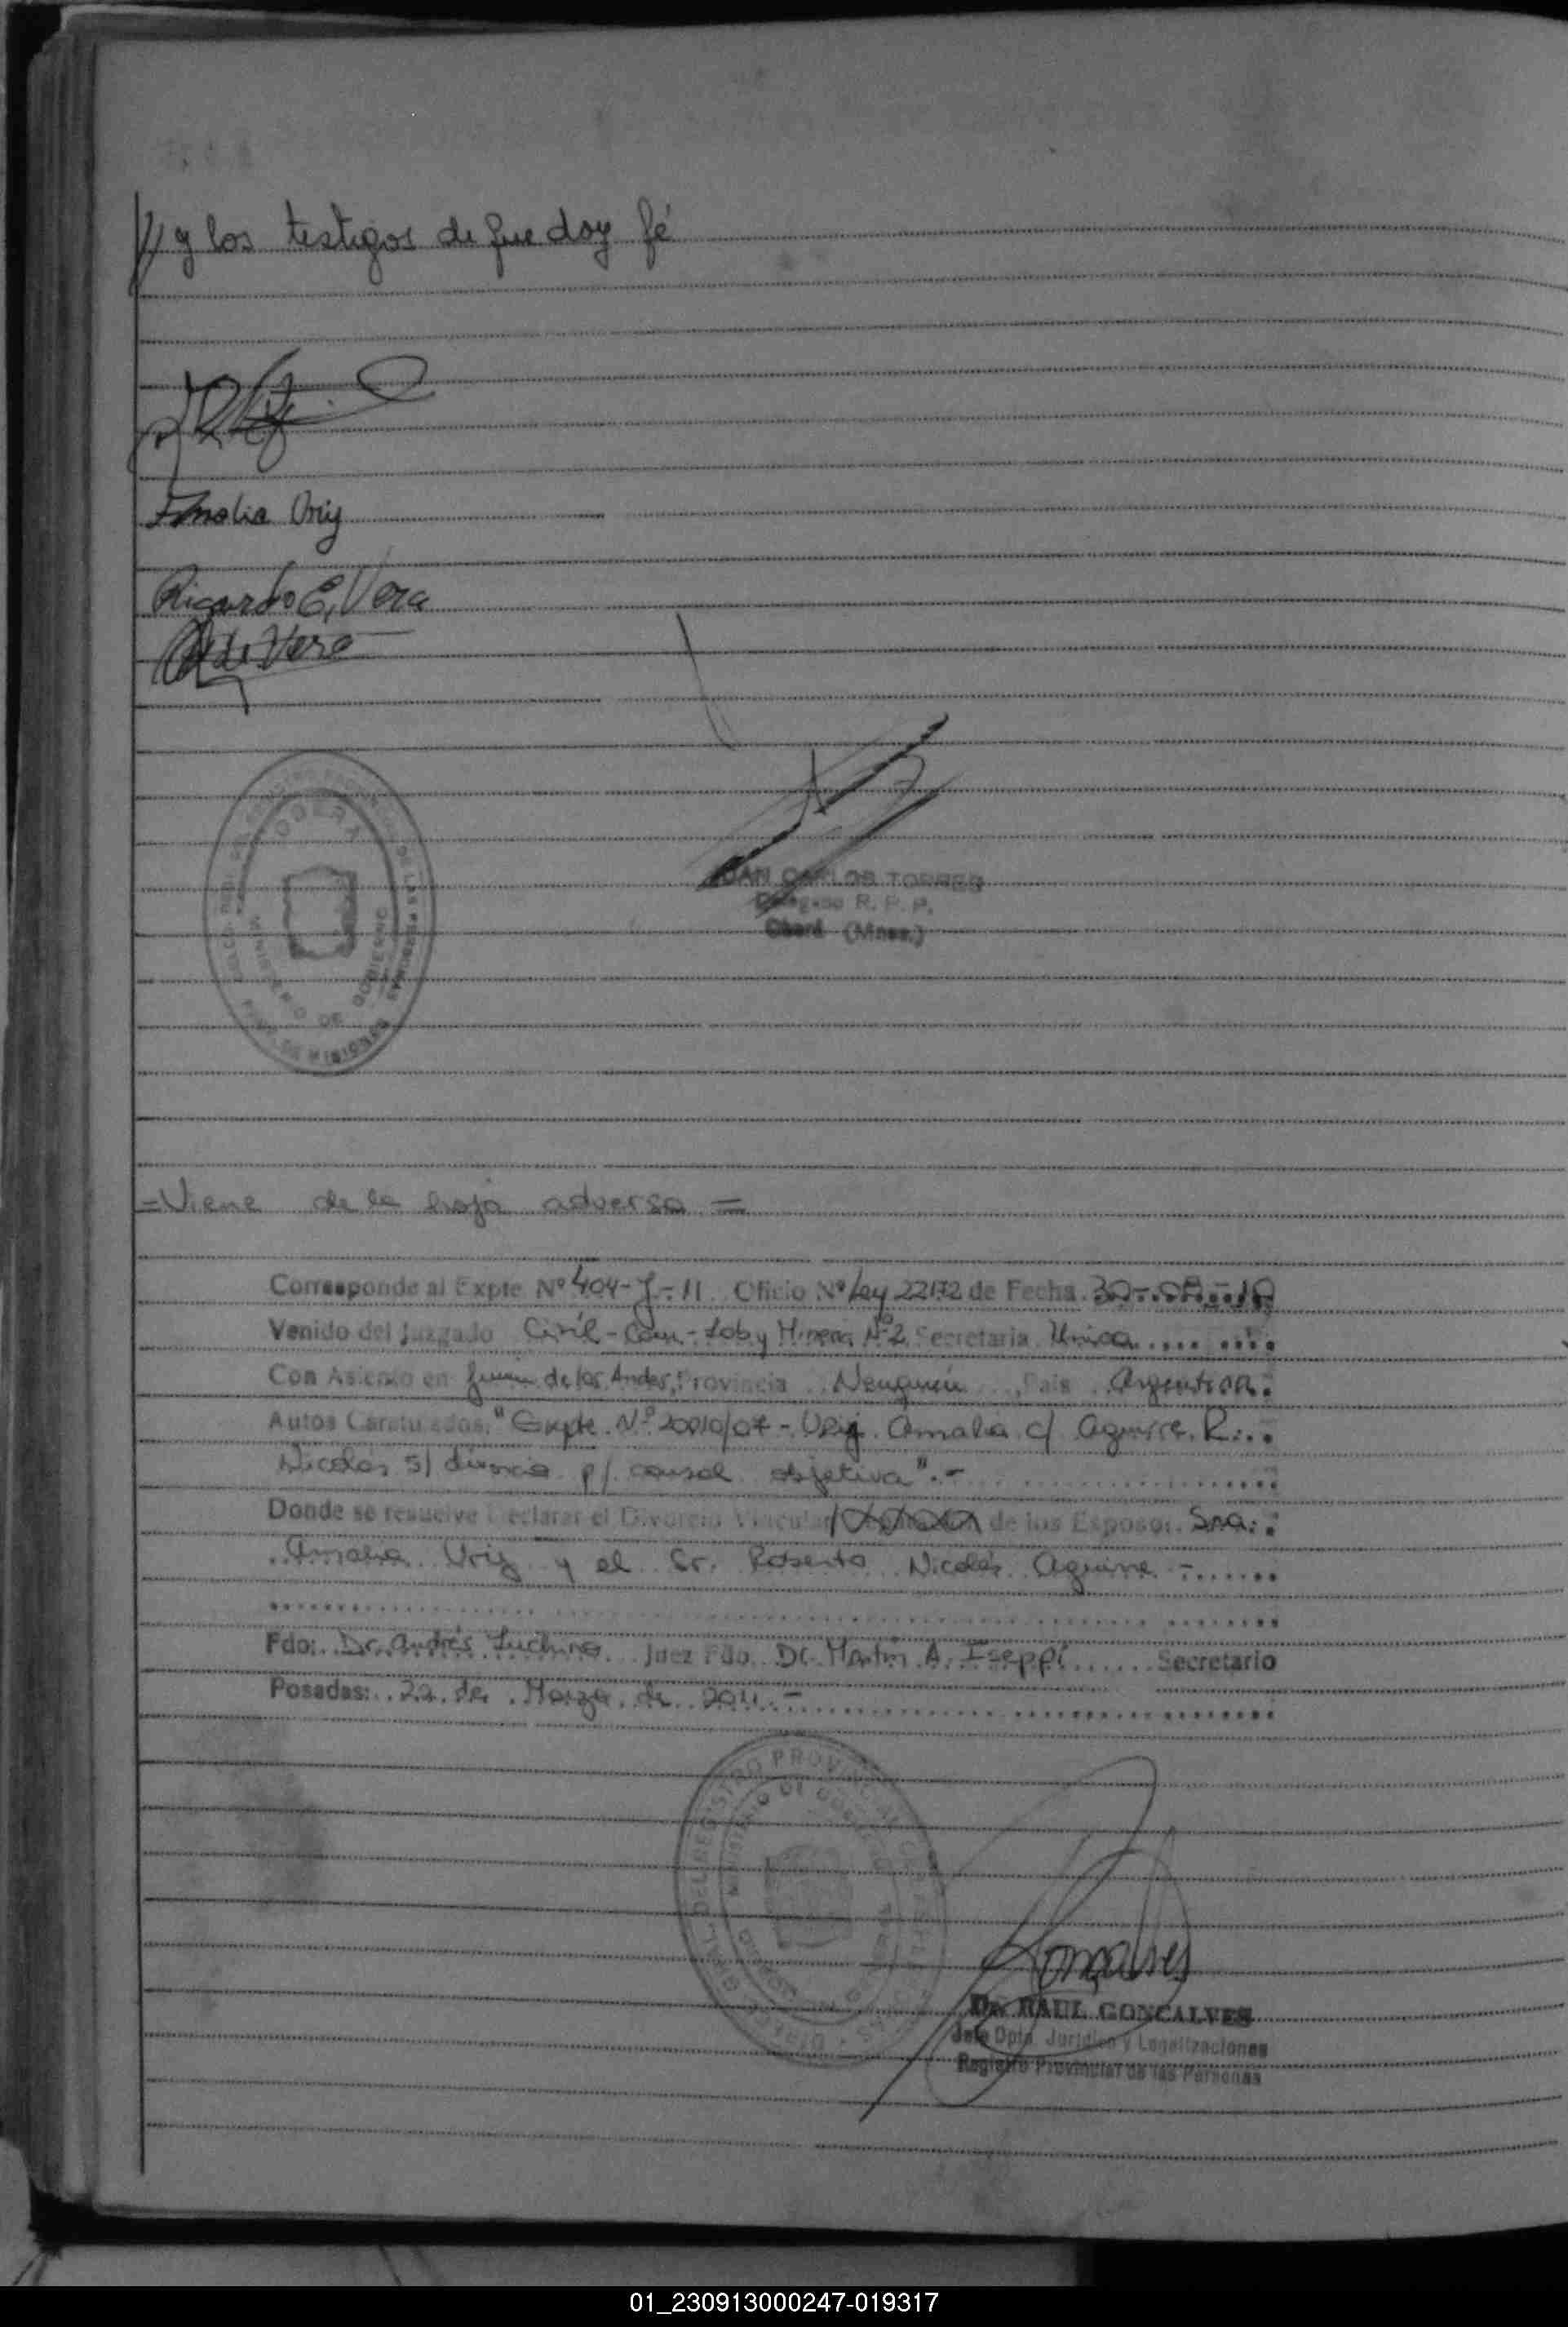 // y los testigos de que doy fé
Amalia Uriz
Ricardo E. Vera
de Vera
OBERA
MINISTERIO DE GOBIERNO
DE MISIONES
JUAN CARLOS TORRES
Delegado R. P. P.
Oberá (Mnes.)
=Viene de la hoja adversa =
Corresponde al Expte Nº 404-J-11 Oficio Nº Ley 22172 de Fecha
Venido del Juzgado Civil-Com-Lab y Mineria Nº2 Secretaria Unica
Con Asiento en Junin de los Andes, Provincia Neuquén, Pais Argentina.
Autos Caratulados: "Expte. Nº 20010/07 - Uriz Amalia c/ Aguirre R.
Nicolás s/ divorcio p/ causal objetiva".-
Donde se resuelve Declarar el Divorcio Vincular/ de los Esposos. Sra.
Amalia Uriz y el Sr. Roberto Nicolás Aguirre -
Fdo: Dr. Andrés Luchino Juez Fdo. Dr. Martín A. Iseppi Secretario
Posadas: 22 de Marzo de 2011.-
Gonçalves
Dr. RAUL GONCALVES
Jefe Dpto. Jurídico y Legalizaciones
Registro Provincial de las Personas
01_230913000247-019317